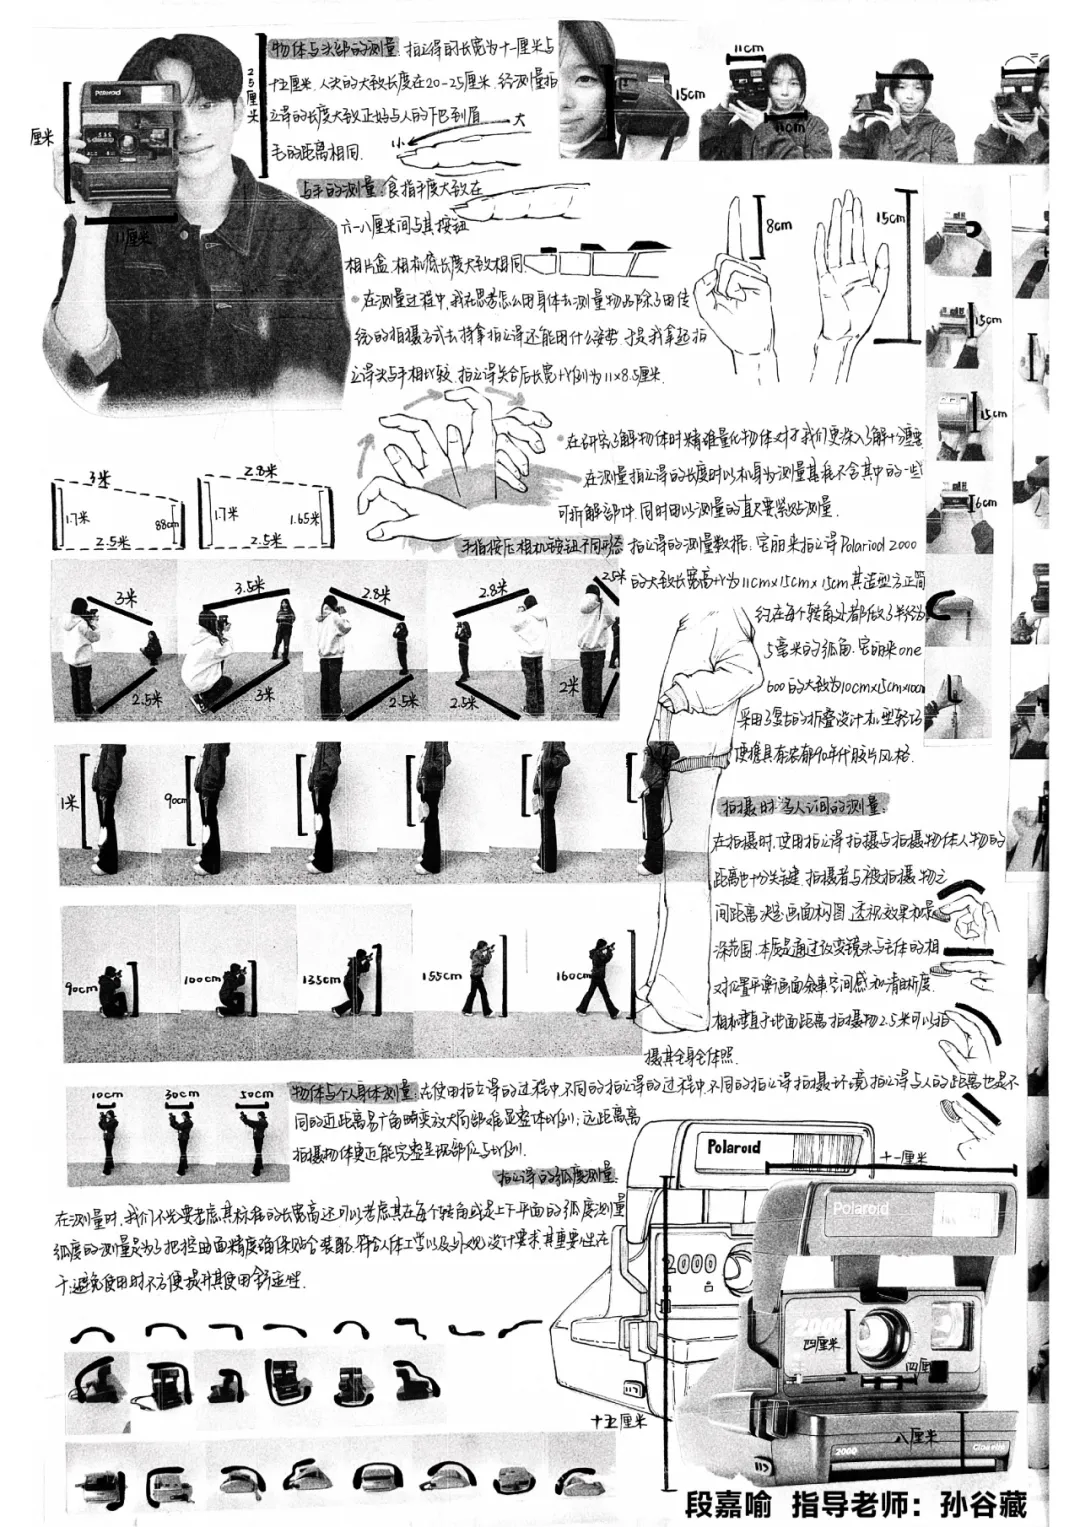 物体与头部的测量:拍立得的长宽为十一厘米与
十五厘米,人头的大致长度在20-25厘米,经测量拍
立得的长度大致正好与人的下巴到眉
毛的距离相同.
Polaroid
厘米
25厘米
11厘米
大
小
11cm
15cm
11cm
与手的测量:食指手度大致在
六-八厘米间与其按钮
相片盒,相机底长度大致相同.
8cm
15cm
在测量过程中,我在思考怎么用身体去测量物品除了用传
统的拍摄方式去持拿拍立得还能用什么姿势,于是我拿起拍
立得来与手相比较,拍立得关合后长宽比例为11x8.5厘米.
15cm
15cm
6cm
在研究了解物体时精准量化物体对于我们更深入了解十分重要
在测量拍立得的长度时以机身为测量其能不含其中的一些
可拆解部件.同时用以测量的直尺要紧贴测量.
3米
1.7米
88cm
2.5米
2.8米
1.7米
1.65米
2.5米
手指按压相机按钮不同形态
拍立得的测量数据:宝丽来拍立得Polariod 2000
的大致长宽高比为11cmx15cmx15cm其造型方正简
约在每个转角处都做了半径为
5毫米的弧角.宝丽来one
600的大致为10cmx15cmx10cm
采用了复古的折叠设计机型轻巧
便携具有浓郁90年代胶片风格.
3米
2.5米
3.5米
3米
2.8米
2.5米
2.8米
2.5米
2.5米
2米
1米
90cm
拍摄时与人之间的测量:
在拍摄时,使用拍立得拍摄与拍摄物体人物的
距离也十分关键.拍摄者与被拍摄物之
间距离决定画面构图,透视效果和景
深范围.本质是通过改变镜头与主体的相
对位置平衡画面叙事空间感和清晰度.
相机垂直于地面距离拍摄物2.5米可以拍
摄其全身全体照.
90cm
100cm
135cm
155cm
160cm
10cm
30cm
50cm
物体与个人身体测量:在使用拍立得的过程中,不同的拍立得的过程中,不同的拍立得拍摄环境,拍立得与人的距离也是不
同的近距离易广角畸变放大局部难显整体比例;远距离离
拍摄物体更远能完整呈现部位与比例.
拍立得的弧度测量:
在测量时,我们不光要考虑其标程的长宽高还可以考虑其在每个转角或是上下平面的弧度测量
弧度的测量是为了把控曲面精度确保贴合装配.符合人体工学以及外观设计要求.其重要性在
于:避免使用时不方便提升其使用舒适性.
Polaroid
2000
十一厘米
Polaroid
2000
四厘米
四厘
十五厘米
八厘米
2000
段嘉喻 指导老师：孙谷藏